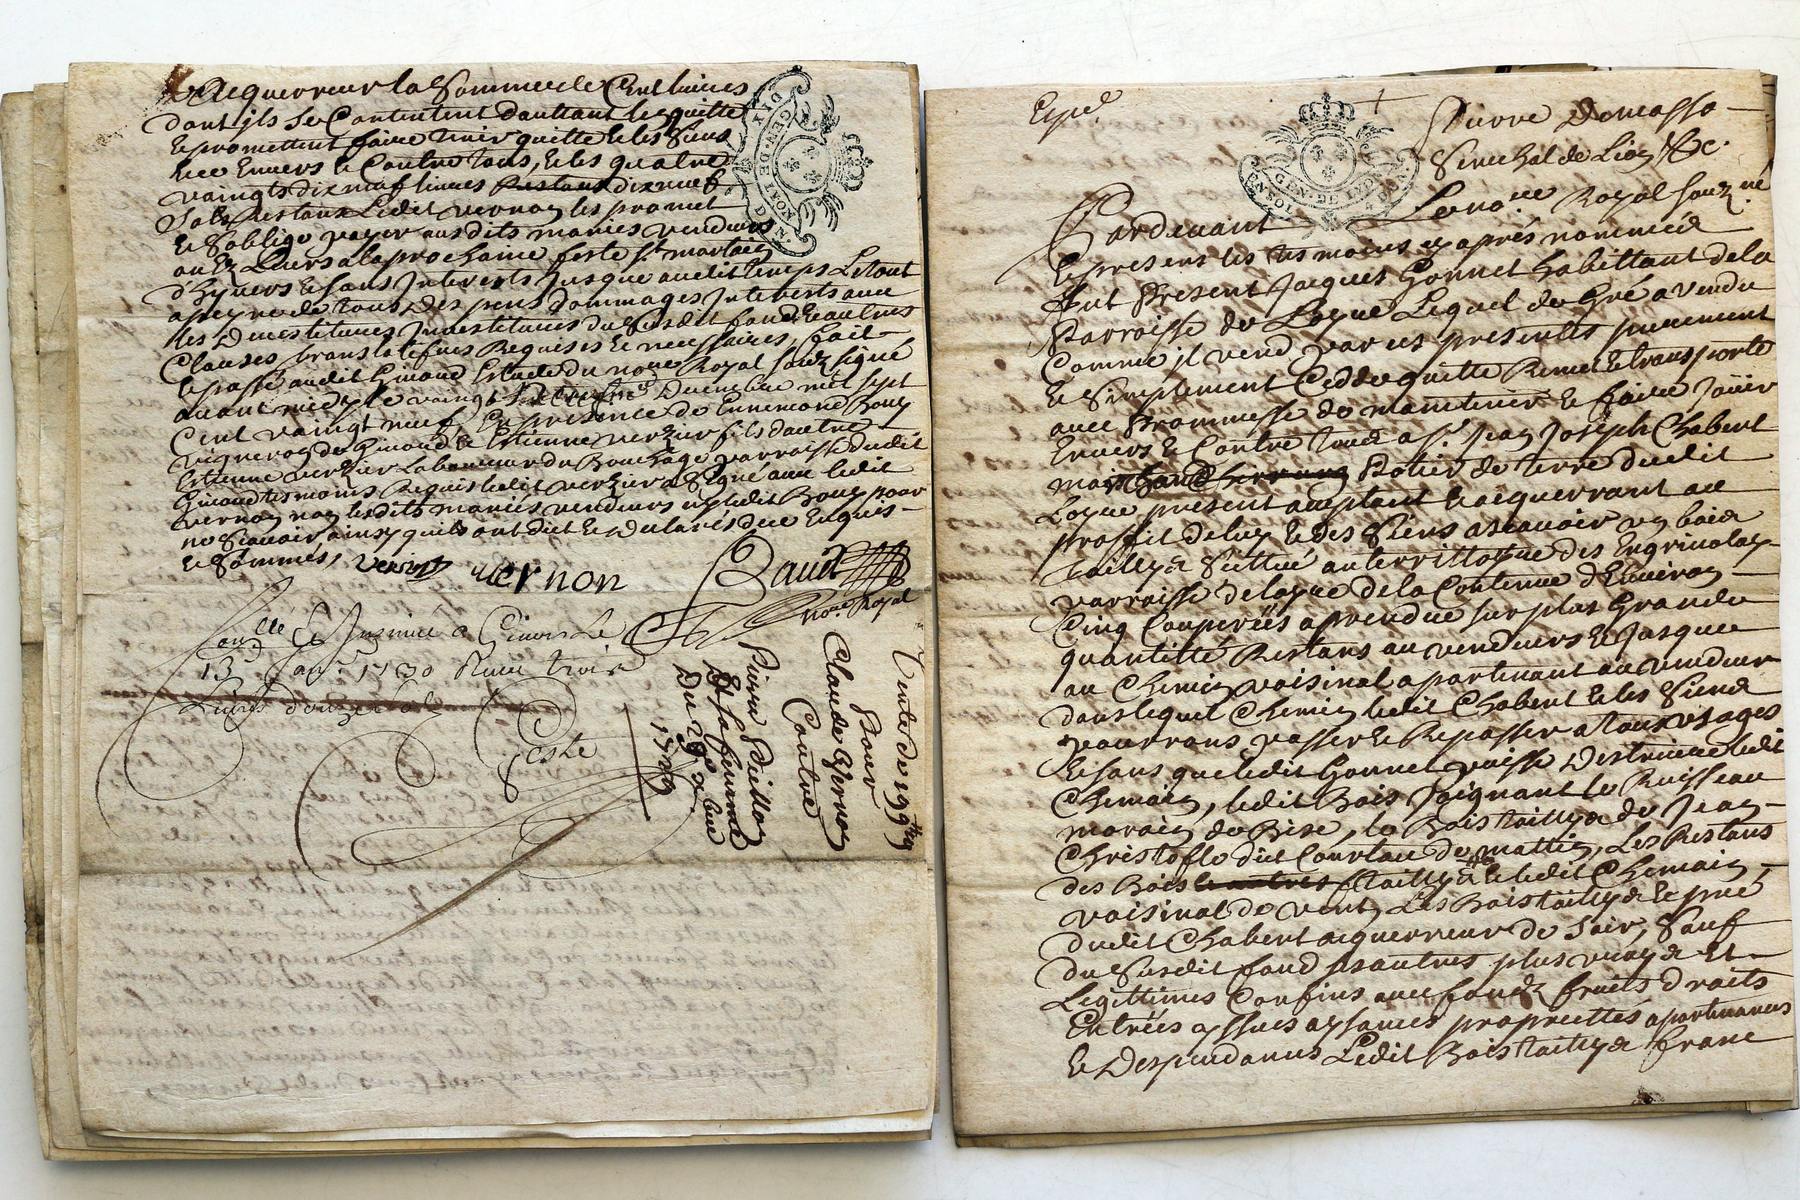 L'acquerreur la Somme de Cent livres
dont ils se Contentent dautant lequitte
le promettent faire tenir quitte le les Siens
Envers le Contre tous, le les quatre
vaingts dix neuf livres Restans dix neuf
Solz Restans Ledit vernon les promet
le S'oblige payer ausdits mariés vendeurs
a la prochaine feste st martin
d'hyvers le sans Interests Jusque audit temps Le tout
a peyne de tous Despens dommages Interests avec
les Investitures du Susdit fond le autres
Clauses translatifves Requises le necessaires, fait
le passé audit Givord Estude du no.re Royal Soubz signé
avant midy le vaingt neuf Decembre mil sept
Cent vaingt neuf, En presence de Ennemond Bouy
vigneron de Givord le Estienne verzier fils d'autre
Estienne verzier Laboureur du Bouchage parroisse dudit
Givord tesmoins Requis ledit verzier a Signé avec ledit
vernon non lesdits mariés vendeurs ny ledit Bouy pour
ne Scavoir ainsy quils ont dit le declaré de ce Enquis
le Sommés,
vernon
Baud
no.re Royal
Con.llé le Insinué a Givord Le
13 Jan.r 1730 Receu trois
Livres douze solz
Geste
Vente de 199
Pour
Claude Vernon
Contre
Pierre
Et sa femme
Du 29
1729
GEN. DE LYON
Expé.
Pierre Demasso
Senechal de Lion &c.
Pardevant Le no.re Royal Soubz.né
le presens les tesmoins cy aprés nommés
fut Present Jacques Gonnet habittant de la
Parroisse de Loyre Lequel de Gré a vendu
Comme jl vend par ces presentes purement
le Simplement Cedde quitte Remet le transporte
avec Promesse de maintenir le faire Joüir
Envers le Contre tous a S.r Jean Joseph Chabert
Potier de terre dudit
Loyre present acceptant le acquerrant au
proffit de luy le des Siens ascavoir un bois
taillys Scittué au territtoyre des
parroisse de Loyre de la Contenue d'Environ
Cinq Couperées a prendre sur plus Grande
quantitté Restans au vendeurs le Jusques
au Chemin voisinal apartenant au vendeur
dans lequel Chemin ledit Chabert le les Siens
pourrons passer le Repasser a tous usages
le sans que ledit Gonnet puisse Destruire ledit
Chemain, ledit Bois Joignant le Ruisseau
de Bise, le Bois taillys de Jean
Christofle dit Courtau de mattin, Les Restans
des Bois taillys le ledit Chemain
voisinal de vent, Les Bois taillys le pré
dudit Chabert acquerreur de Soir, Sauf
du Susdit fond Ses autres plus vrays Et
Legittimes Confins avec fondz fruits droits
Entrées yssues aysances proprietés apartenances
le Despendances Ledit Bois taillys franc
GEN. DE LYON